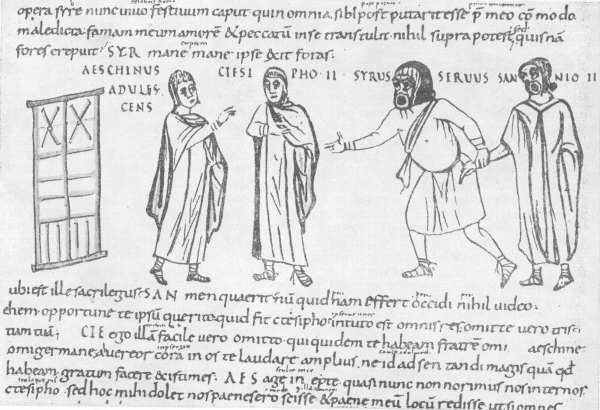 opera syre nunc vivo festivum caput· quin omnia sibi post putarit esse p̄ meo cōmodo
maledicta· famam meum amorē & peccatū in se transtulit· nihil supra potest· quis nā
fores crepuit· SYR mane mane ipse exit foras·
AESCHINUS CTESIPHO·II· SYRUS SERUUS SANNIO II
ADULES
CENS
ubi est ille sacrilegus· SAN men quaerit nū quid nam effert· occidi nihil video·
ehem opportune te ipsū querito quid fit ctesipho intuto est omnis res omitte vero tris
tuā; CTE ego illā facile vero omitto qui quidem te habeam fratrē o mi aeschine·
o mi germane a vereor corā in os te laudare amplius· ne id ad sentandi magis quā qd
habeam gratum facere existimes· AES age inepte quasi nunc non norimus nos inter nos
ctesipho· sed hoc mihi dolet nos paene sero scisse & paene locū redisse ut si omnes